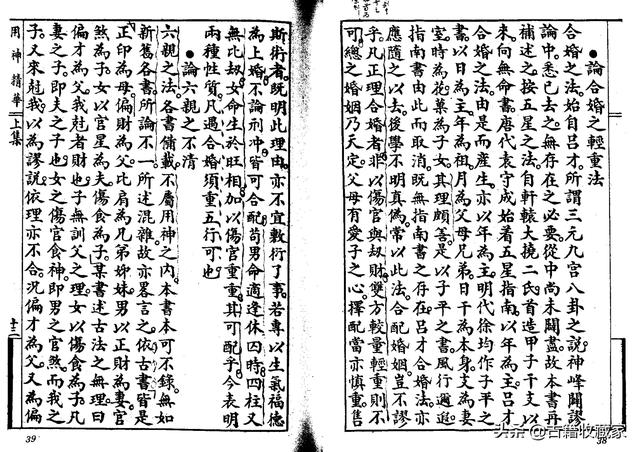 ●論合婚之輕重法
合婚之法始自呂才所謂三元九宮八卦之說神峰闢謬
論中悉已去之無存在之必要從中尚未闢盡故本書再
補述之按五星之法自軒轅大撓二氏首造甲子干支以
來向無命書唐代袁守成始着五星指南以年為主呂才
合婚之法由是而產生亦以年為主明代徐均作子平之
欵以日為主年為祖月為父母兄弟日干為本身支為妻
室時為花菓為子女其理頗善是以子平之書風行遐邇
指南書由此而取消既無指南書之存在呂才合婚法亦
應隨之以去後學不明真偽常以此法合配婚姻豈不謬
乎凡正理合婚者非以傷官與劫財雙方較量輕重則不
可總之婚姻乃天定父母有愛子之心擇配當亦慎重售
38
斯術者既明此理由亦不宜敷衍了事若專以生氣福德
為上婚不論刑冲皆可合配苟男命適逢休囚時四柱又
無比劫女命生於旺相加以傷官重重其可配乎今表明
兩種性質凡遇合婚須重五行可也
●論六親之不清
六親之法各書備載不屬用神之內本書本可不錄無如
新舊各書所論不一所述混雜故亦畧言之依古書皆是
正印為母偏財為父比肩為兄弟姊妹男以正財為妻官
煞為子女以官星為夫傷食為子某書述古法之無理曰
偏才為父我尅者財也無訓父之理女以傷食為子凡
妻之子即夫之子也女之傷官食神即男之官煞而我之
子又來尅我以為謬說依理亦不合況偏才為父又為偏
用神精華
上集
十三
39
头条@古籍收藏家